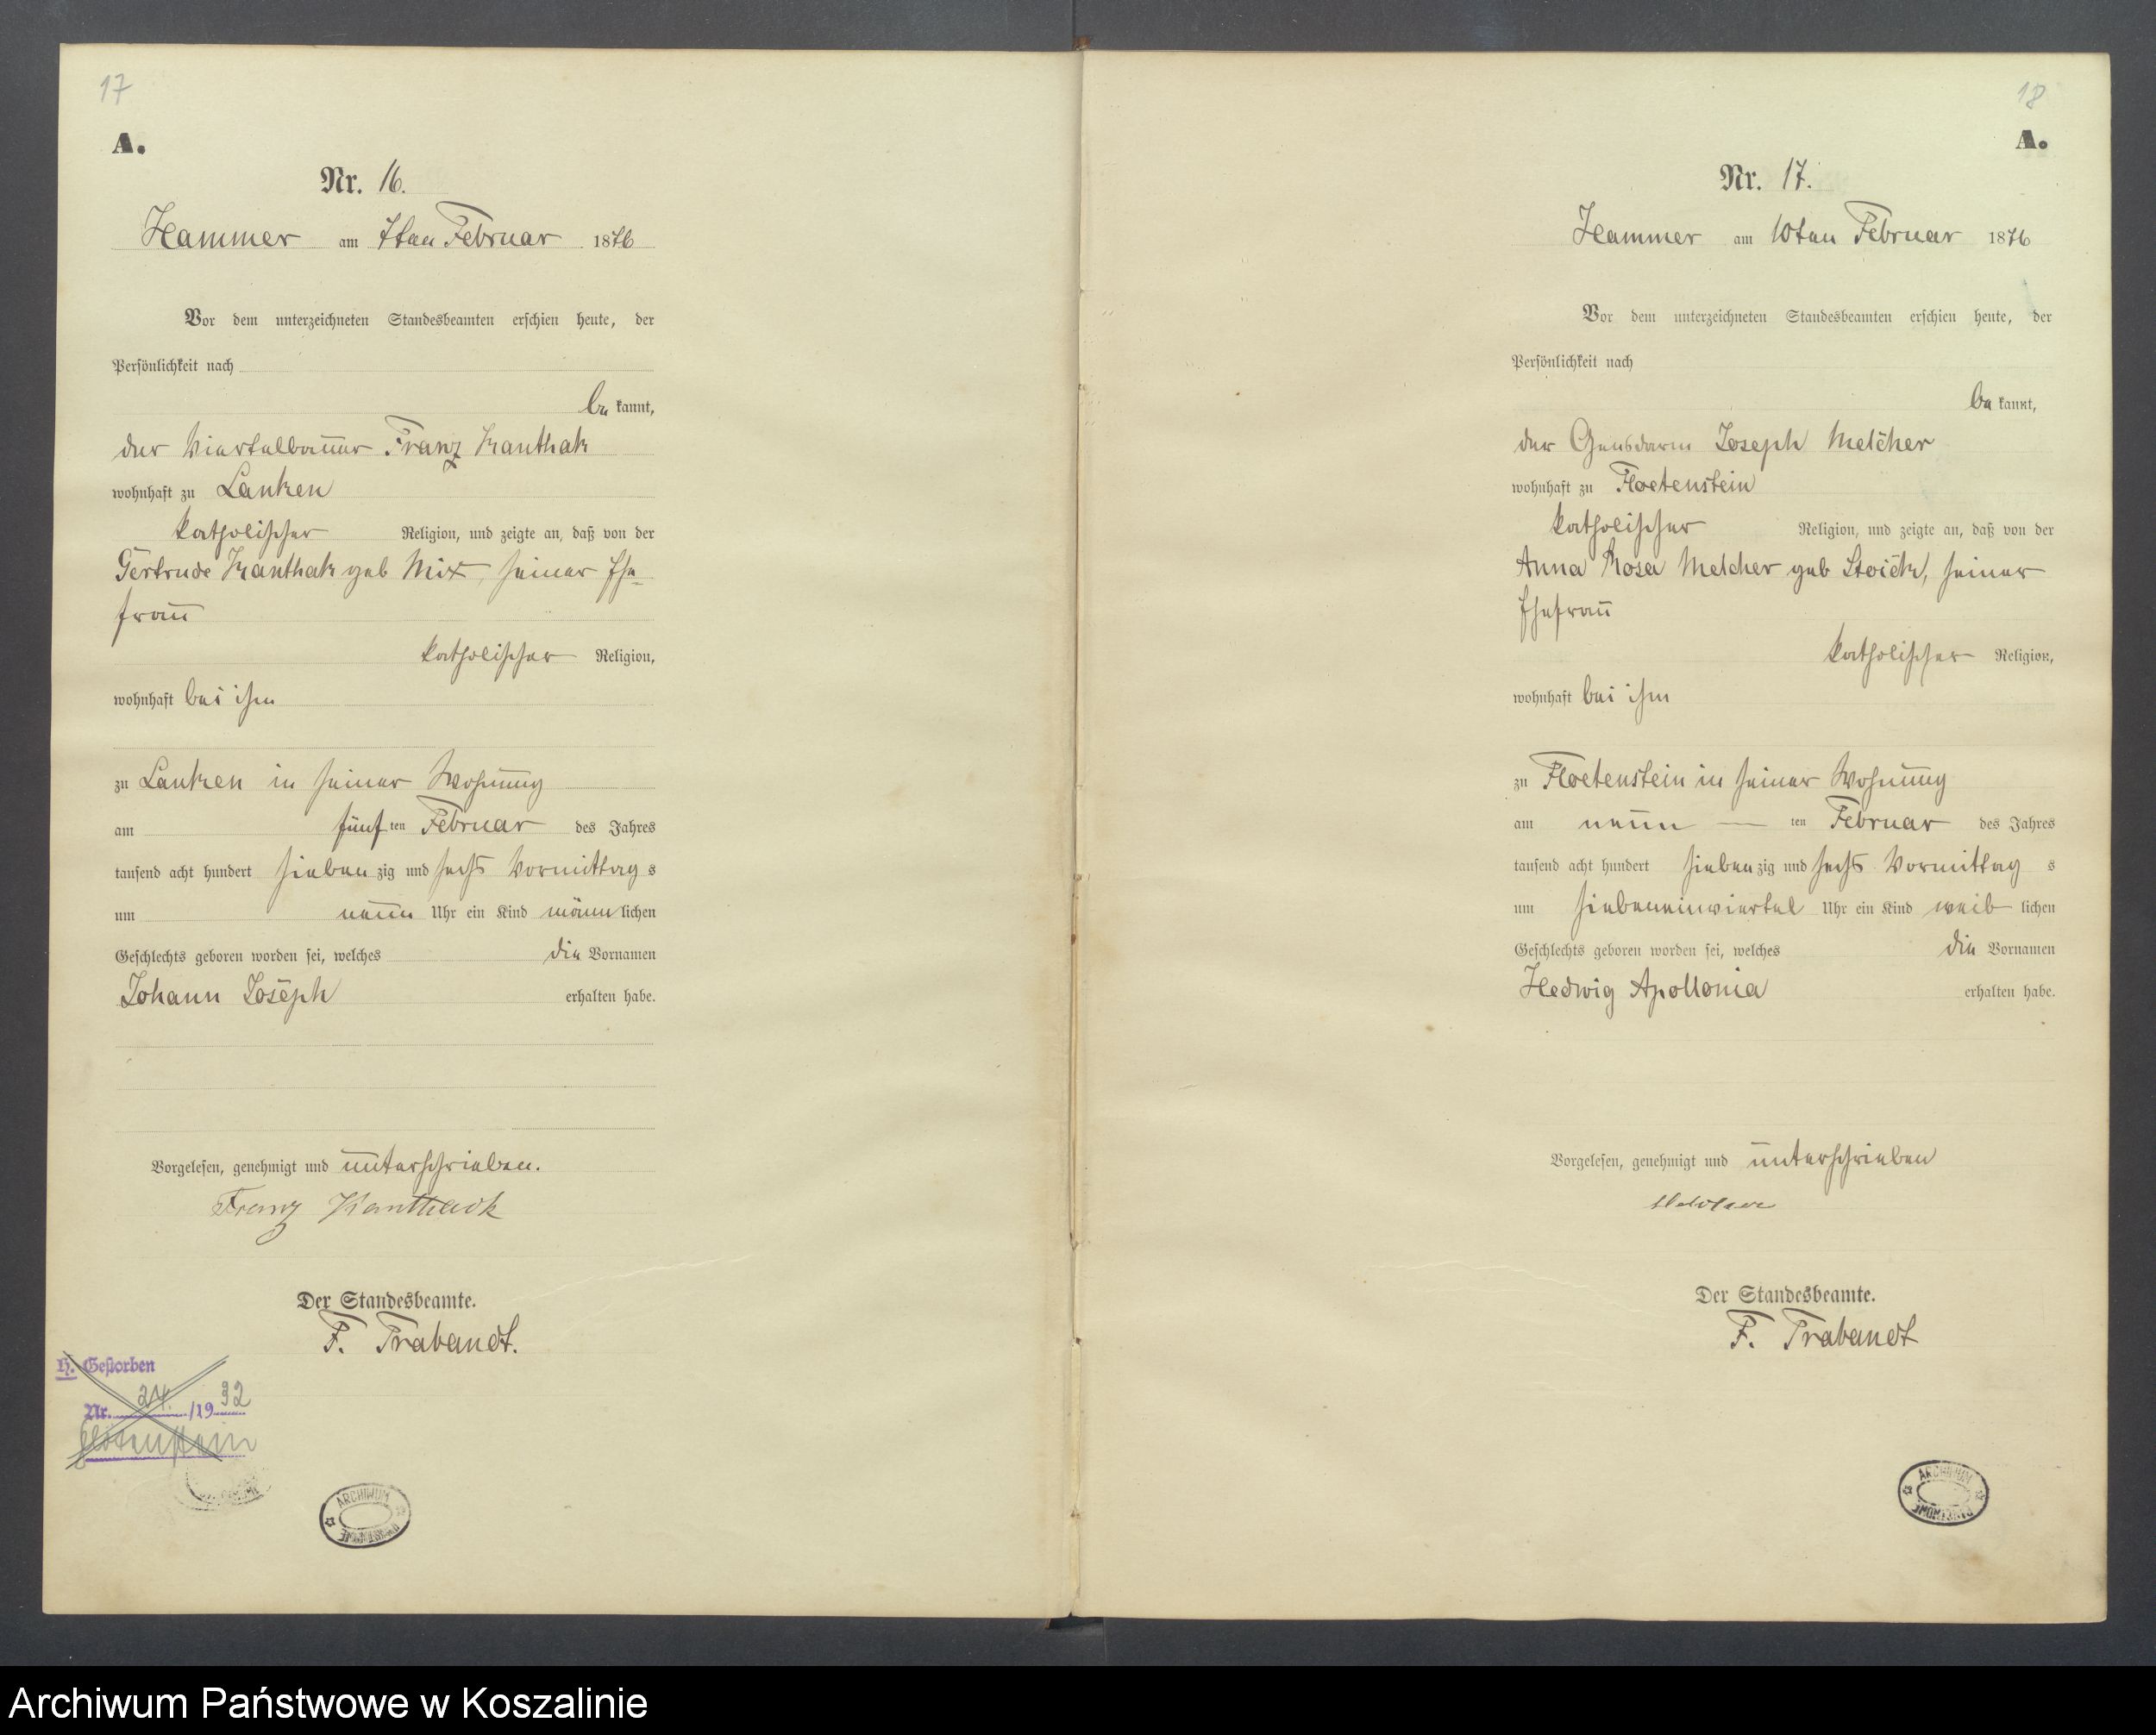 17
A.
Nr. 16.
Hammer am 7ten Februar 1876
Vor dem unterzeichneten Standesbeamten erschien heute, der
Persönlichkeit nach
be kannt,
der Viertelbauer Franz Kanthak
wohnhaft zu Lanken
katholischer Religion, und zeigte an, daß von der
Gertrude Kanthak geb Mix, seiner Ehe-
frau
katholischer Religion,
wohnhaft bei ihm
zu Lanken in seiner Wohnung
am fünf ten Februar des Jahres
tausend acht hundert sieben zig und sechs Vormittag s
um neun Uhr ein Kind männ lichen
Geschlechts geboren worden sei, welches die Vornamen
Johann Joseph erhalten habe.
Vorgelesen, genehmigt und unterschrieben.
Franz Kanthack
Der Standesbeamte.
F. Trabandt.
H. Gestorben
Nr. 24. /1932
Flötenstein
ARCHIWUM
18
A.
Nr. 17.
Hammer am 10ten Februar 1876
Vor dem unterzeichneten Standesbeamten erschien heute, der
Persönlichkeit nach
be kannt,
der Gensdarm Joseph Melcher
wohnhaft zu Floetenstein
katholischer Religion, und zeigte an, daß von der
Anna Rosa Melcher geb Stoick, seiner
Ehefrau
katholischer Religion,
wohnhaft bei ihm
zu Floetenstein in seiner Wohnung
am neun — ten Februar des Jahres
tausend acht hundert sieben zig und sechs Vormittag s
um siebeneinviertel Uhr ein Kind weib lichen
Geschlechts geboren worden sei, welches die Vornamen
Hedwig Apollonia erhalten habe.
Vorgelesen, genehmigt und unterschrieben
Melcher
Der Standesbeamte.
F. Trabandt
ARCHIWUM
Archiwum Państwowe w Koszalinie